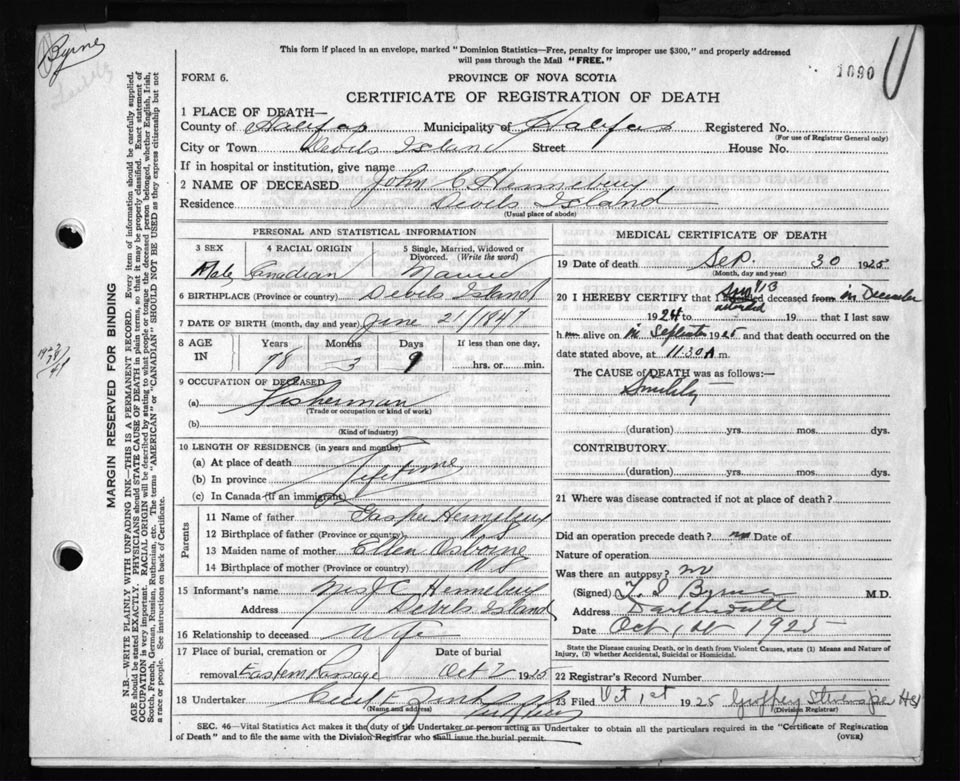 Byrne
This form if placed in an envelope, marked "Dominion Statistics—Free, penalty for improper use $300," and properly addressed
will pass through the Mail "FREE."
1090
FORM 6.
PROVINCE OF NOVA SCOTIA
CERTIFICATE OF REGISTRATION OF DEATH
1 PLACE OF DEATH—
County of Halifax Municipality of Halifax Registered No.
(For use of Registrar General only)
City or Town Devils Island Street House No.
If in hospital or institution, give name
2 NAME OF DECEASED John C Henneberry
Residence Devils Island
(Usual place of abode)
PERSONAL AND STATISTICAL INFORMATION
3 SEX 4 RACIAL ORIGIN 5 Single, Married, Widowed or
Divorced. (Write the word)
Male Canadian Married
6 BIRTHPLACE (Province or country) Devils Island
7 DATE OF BIRTH (month, day and year) June 21/1847
8 AGE IN Years Months Days If less than one day,
78 3 9 hrs. or min.
9 OCCUPATION OF DECEASED
(a) Fisherman
(Trade or occupation or kind of work)
(b)
(Kind of industry)
10 LENGTH OF RESIDENCE (in years and months)
(a) At place of death
(b) In province Life time
(c) In Canada (if an immigrant)
Parents
11 Name of father Casper Henneberry
12 Birthplace of father (Province or country) N S
13 Maiden name of mother Ellen Osborne
14 Birthplace of mother (Province or country) N S
15 Informant's name Mrs J C Henneberry
Address Devils Island
16 Relationship to deceased Wife
17 Place of burial, cremation or Date of burial
removal Eastern Passage Oct 2 1925
18 Undertaker
(Name and address)
MEDICAL CERTIFICATE OF DEATH
19 Date of death Sep. 30 1925
(Month, day and year)
20 I HEREBY CERTIFY that I attended deceased from in December
1924 19 that I last saw
h alive on in September 1925 and that death occurred on the
date stated above, at 11.30 A m.
The CAUSE of DEATH was as follows:—
Senility
(duration) yrs. mos. dys.
CONTRIBUTORY.
(duration) yrs. mos. dys.
21 Where was disease contracted if not at place of death?
Did an operation precede death? no Date of
Nature of operation
Was there an autopsy? no
(Signed) Byrne M.D.
Address Dartmouth
Date Oct 1st 1925
State the Disease causing Death, or in death from Violent Causes, state (1) Means and Nature of
Injury, (2) whether Accidental, Suicidal or Homicidal.
22 Registrar's Record Number
23 Filed Oct 1st 1925
(Division Registrar)
SEC. 46—Vital Statistics Act makes it the duty of the Undertaker or person acting as Undertaker to obtain all the particulars required in the "Certificate of Registration
of Death" and to file the same with the Division Registrar who shall issue the burial permit.
(OVER)
MARGIN RESERVED FOR BINDING
N.B.—WRITE PLAINLY WITH UNFADING INK—THIS IS A PERMANENT RECORD. Every item of information should be carefully supplied.
AGE should be stated EXACTLY. PHYSICIANS should STATE CAUSE OF DEATH in plain terms, so that it may be properly classified. Exact statement of
OCCUPATION is very important. RACIAL ORIGIN will be described by stating to what people or tongue the deceased person belonged, whether English, Irish,
Scotch, French, German, Russian, Ruthenian, etc. The terms "AMERICAN" or "CANADIAN" SHOULD NOT BE USED as they express citizenship but not
a race or people. See instructions on back of Certificate.